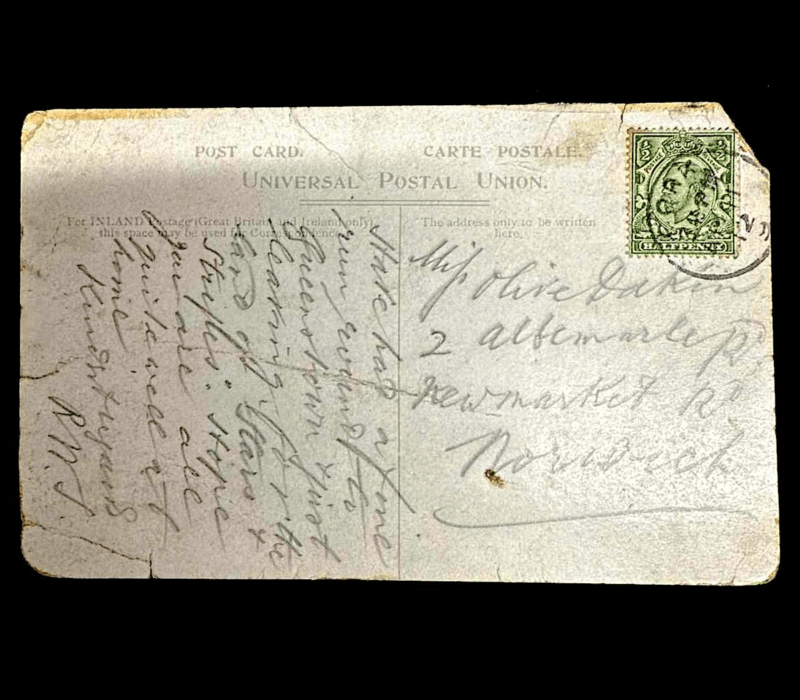 POST CARD.
CARTE POSTALE.
UNIVERSAL POSTAL UNION.
For INLAND Postage (Great Britain and Ireland only)
this space may be used for Correspondence.
The address only to be written
here.
½ ½
HALFPENNY
Have had a fine
run round to
Queenstown & just
leaving for the
land of "Stars &
Stripes". Hope
you are all
quite well at
home
Kindest regards
Miss Olive Dakin
2 Albemarle Rd
Newmarket Rd
Norwich